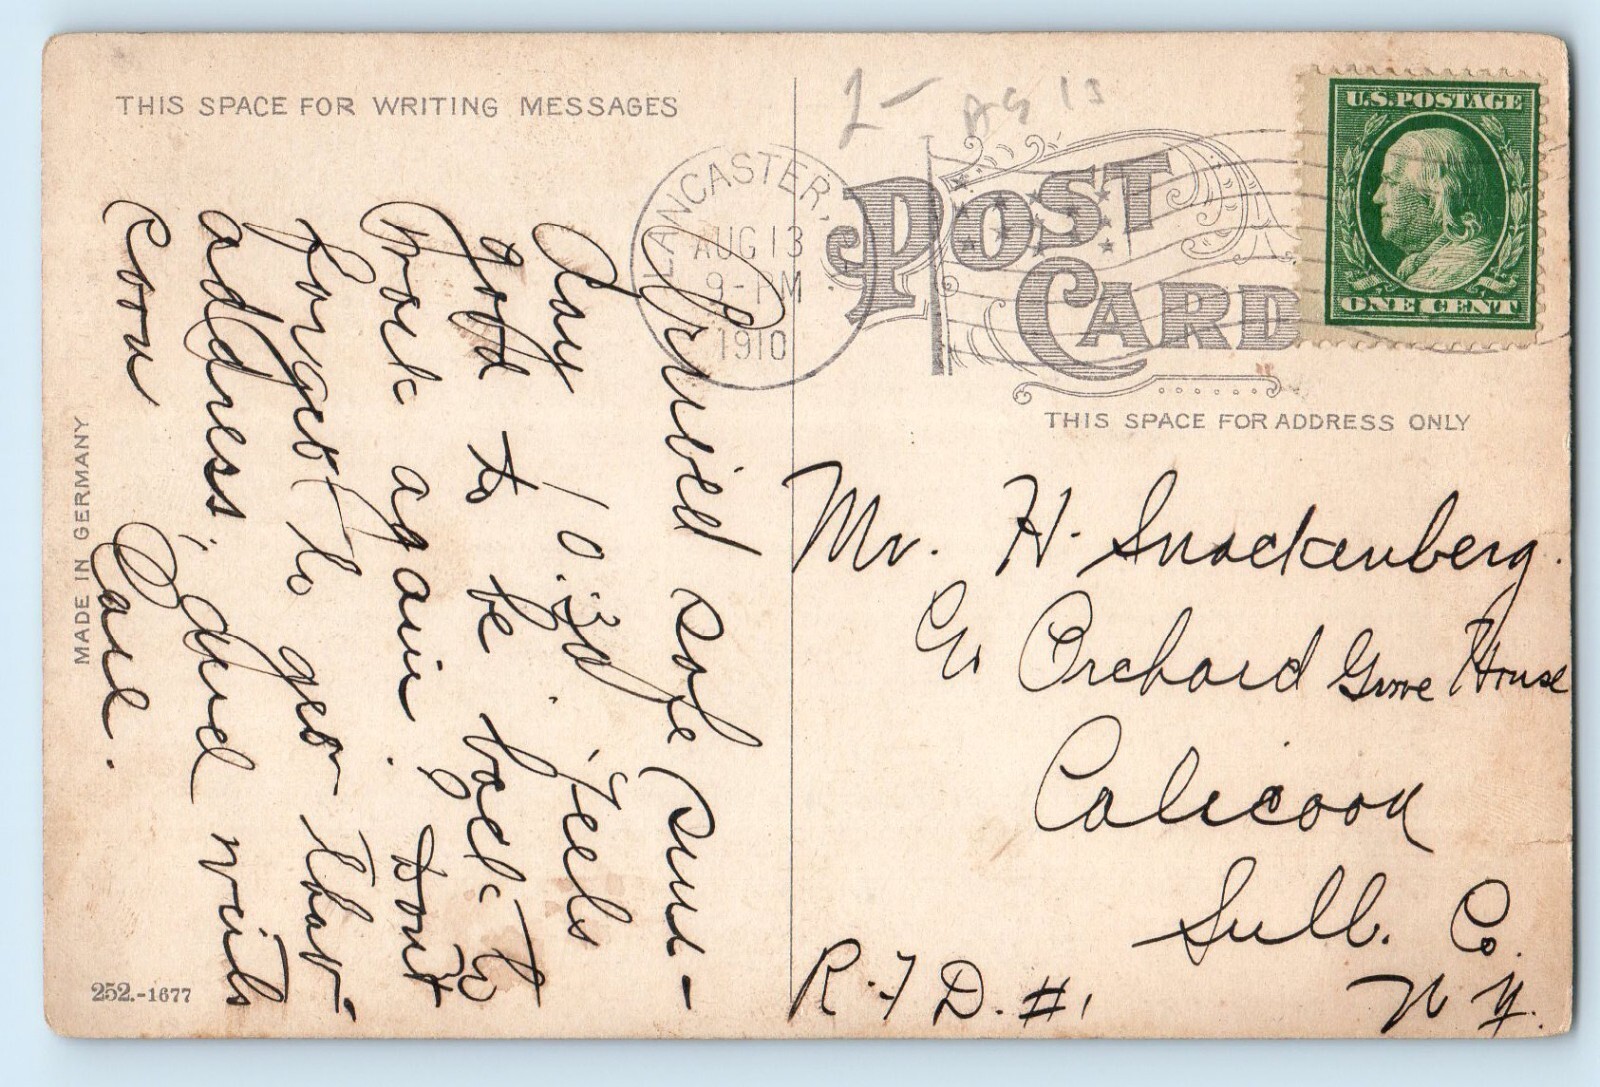 THIS SPACE FOR WRITING MESSAGES
Arrived safe Sun-
day 10.30. feels
good to be back to
work again. Don't
forget to get that
address, and write
soon
Carl.
MADE IN GERMANY
252.-1677
LANCASTER,
AUG 13
1910
POST CARD
U.S. POSTAGE
ONE CENT
THIS SPACE FOR ADDRESS ONLY
Mr. H. Snackenberg.
Orchard Grove House
Calicoon
Sull. Co.
R.F.D. #1
N.Y.